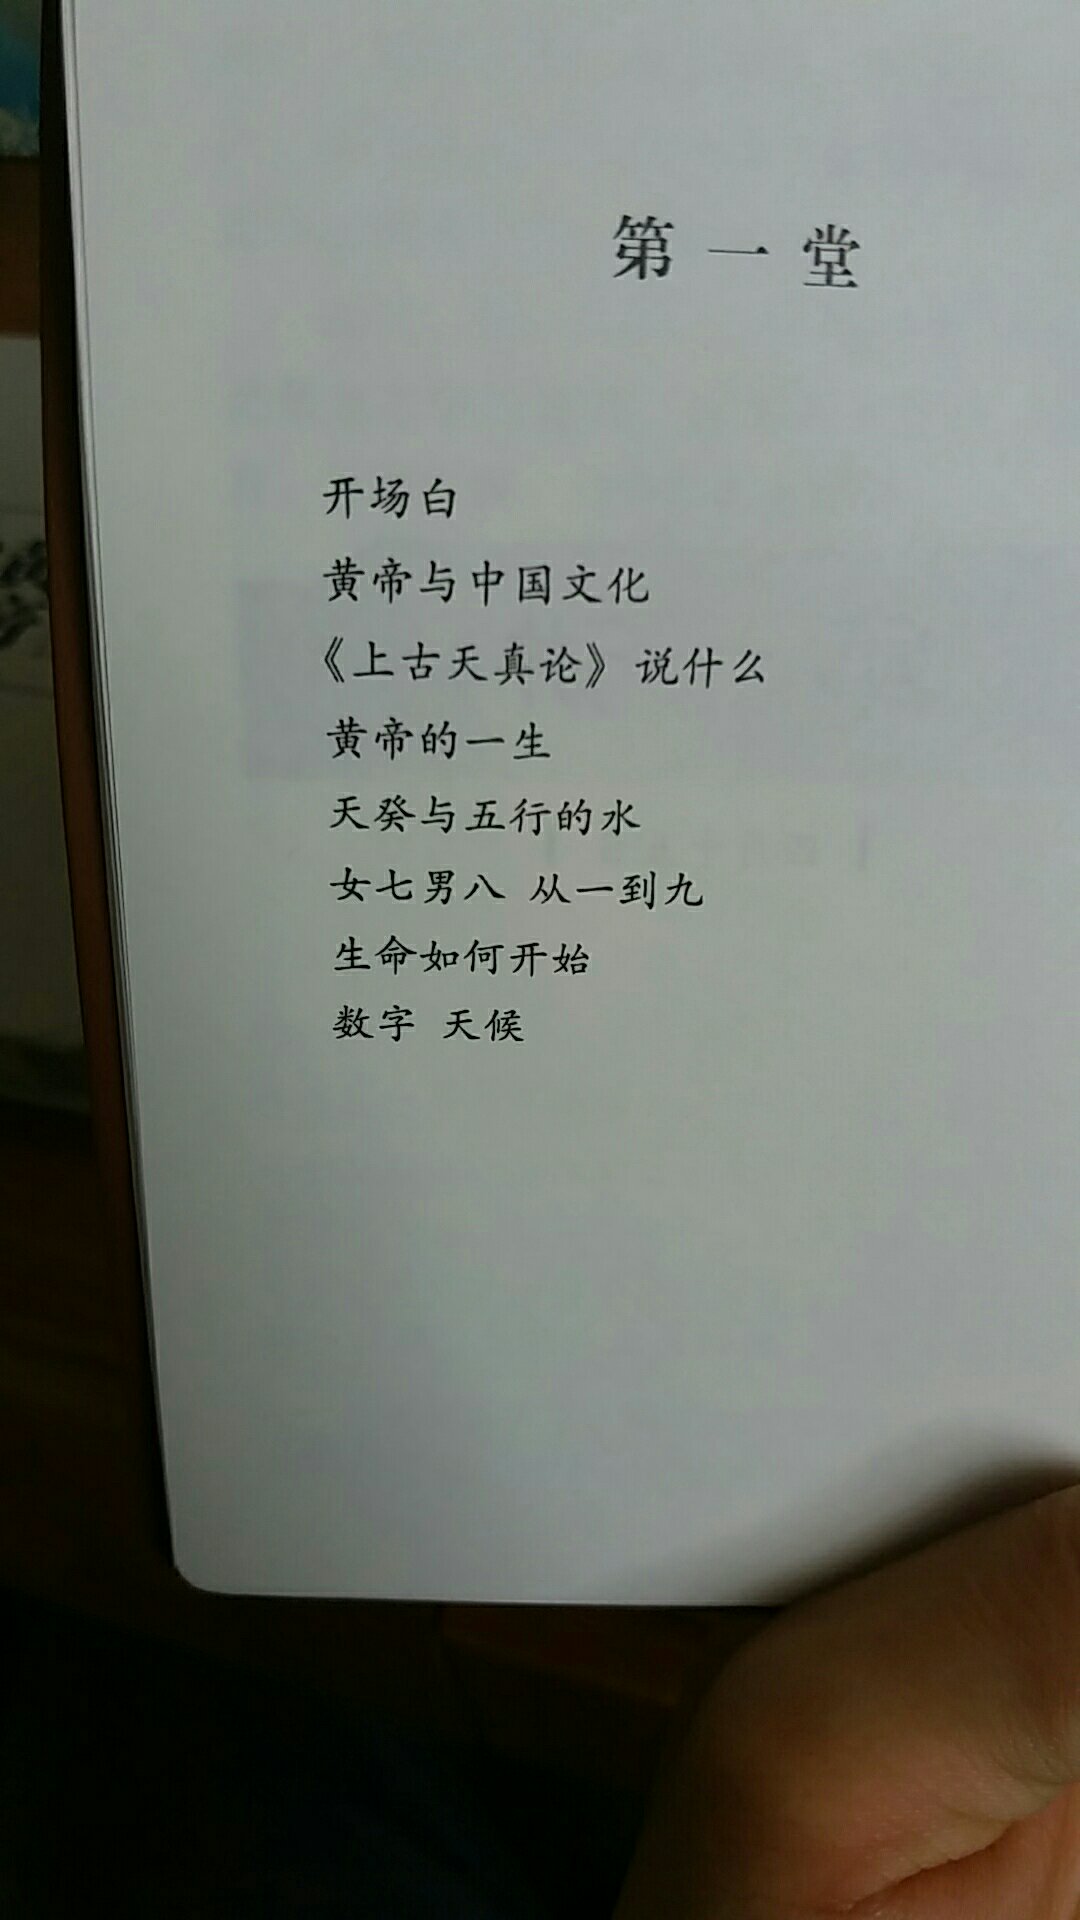 第一堂
开场白
黄帝与中国文化
《上古天真论》说什么
黄帝的一生
天癸与五行的水
女七男八 从一到九
生命如何开始
数字 天候